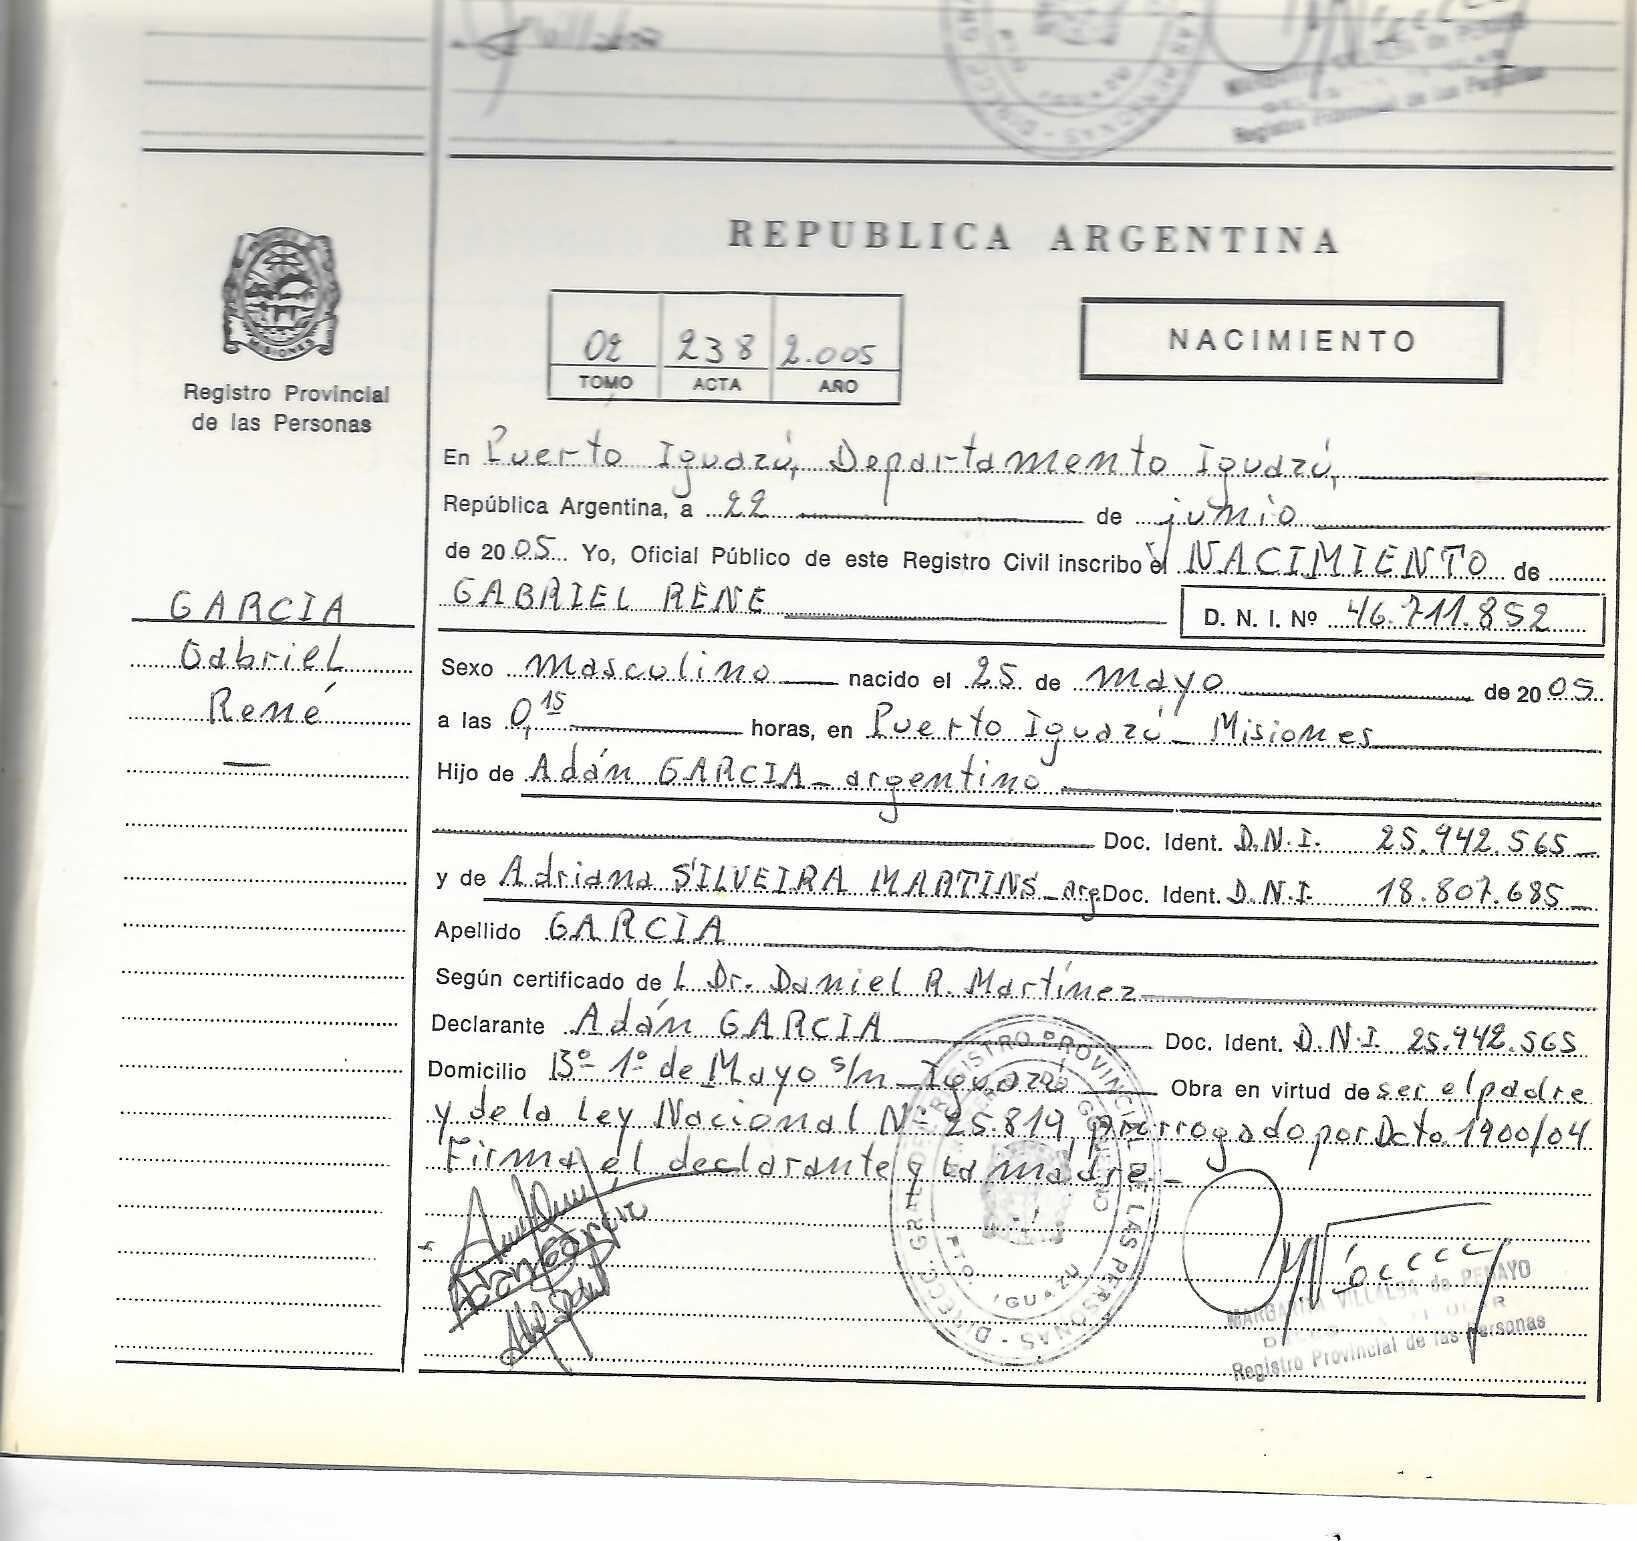 REPUBLICA ARGENTINA
MISIONES
Registro Provincial
de las Personas
02 238 2.005
TOMO ACTA AÑO
NACIMIENTO
En Puerto Iguazú, Departamento Iguazú,
República Argentina, a 22 de junio
de 2005 Yo, Oficial Público de este Registro Civil inscribo el NACIMIENTO de
GABRIEL RENE D. N. I. Nº 46.711.852
GARCIA
Gabriel
René
Sexo Masculino nacido el 25 de mayo de 2005
a las 0,15 horas, en Puerto Iguazú - Misiones
Hijo de Adán GARCIA - argentino
Doc. Ident. D.N.I. 25.942.565
y de Adriana SILVEIRA MARTINS - arg. Doc. Ident. D.N.I. 18.807.685
Apellido GARCIA
Según certificado de L Dr. Daniel R. Martínez
Declarante Adán GARCIA Doc. Ident. D.N.I. 25.942.565
Domicilio Bº 1º de Mayo s/n - Iguazú Obra en virtud de ser el padre
y de la Ley Nacional Nº 25.819, prorrogado por Dcto. 1900/04
Firma el declarante y la madre.-
Adan Garcia
REGISTRO PROVINCIAL DE LAS PERSONAS - DIRECC. GRAL. DE
PTO. IGUAZU
MARGARITA VILLALBA de PENAYO
Registro Provincial de las Personas